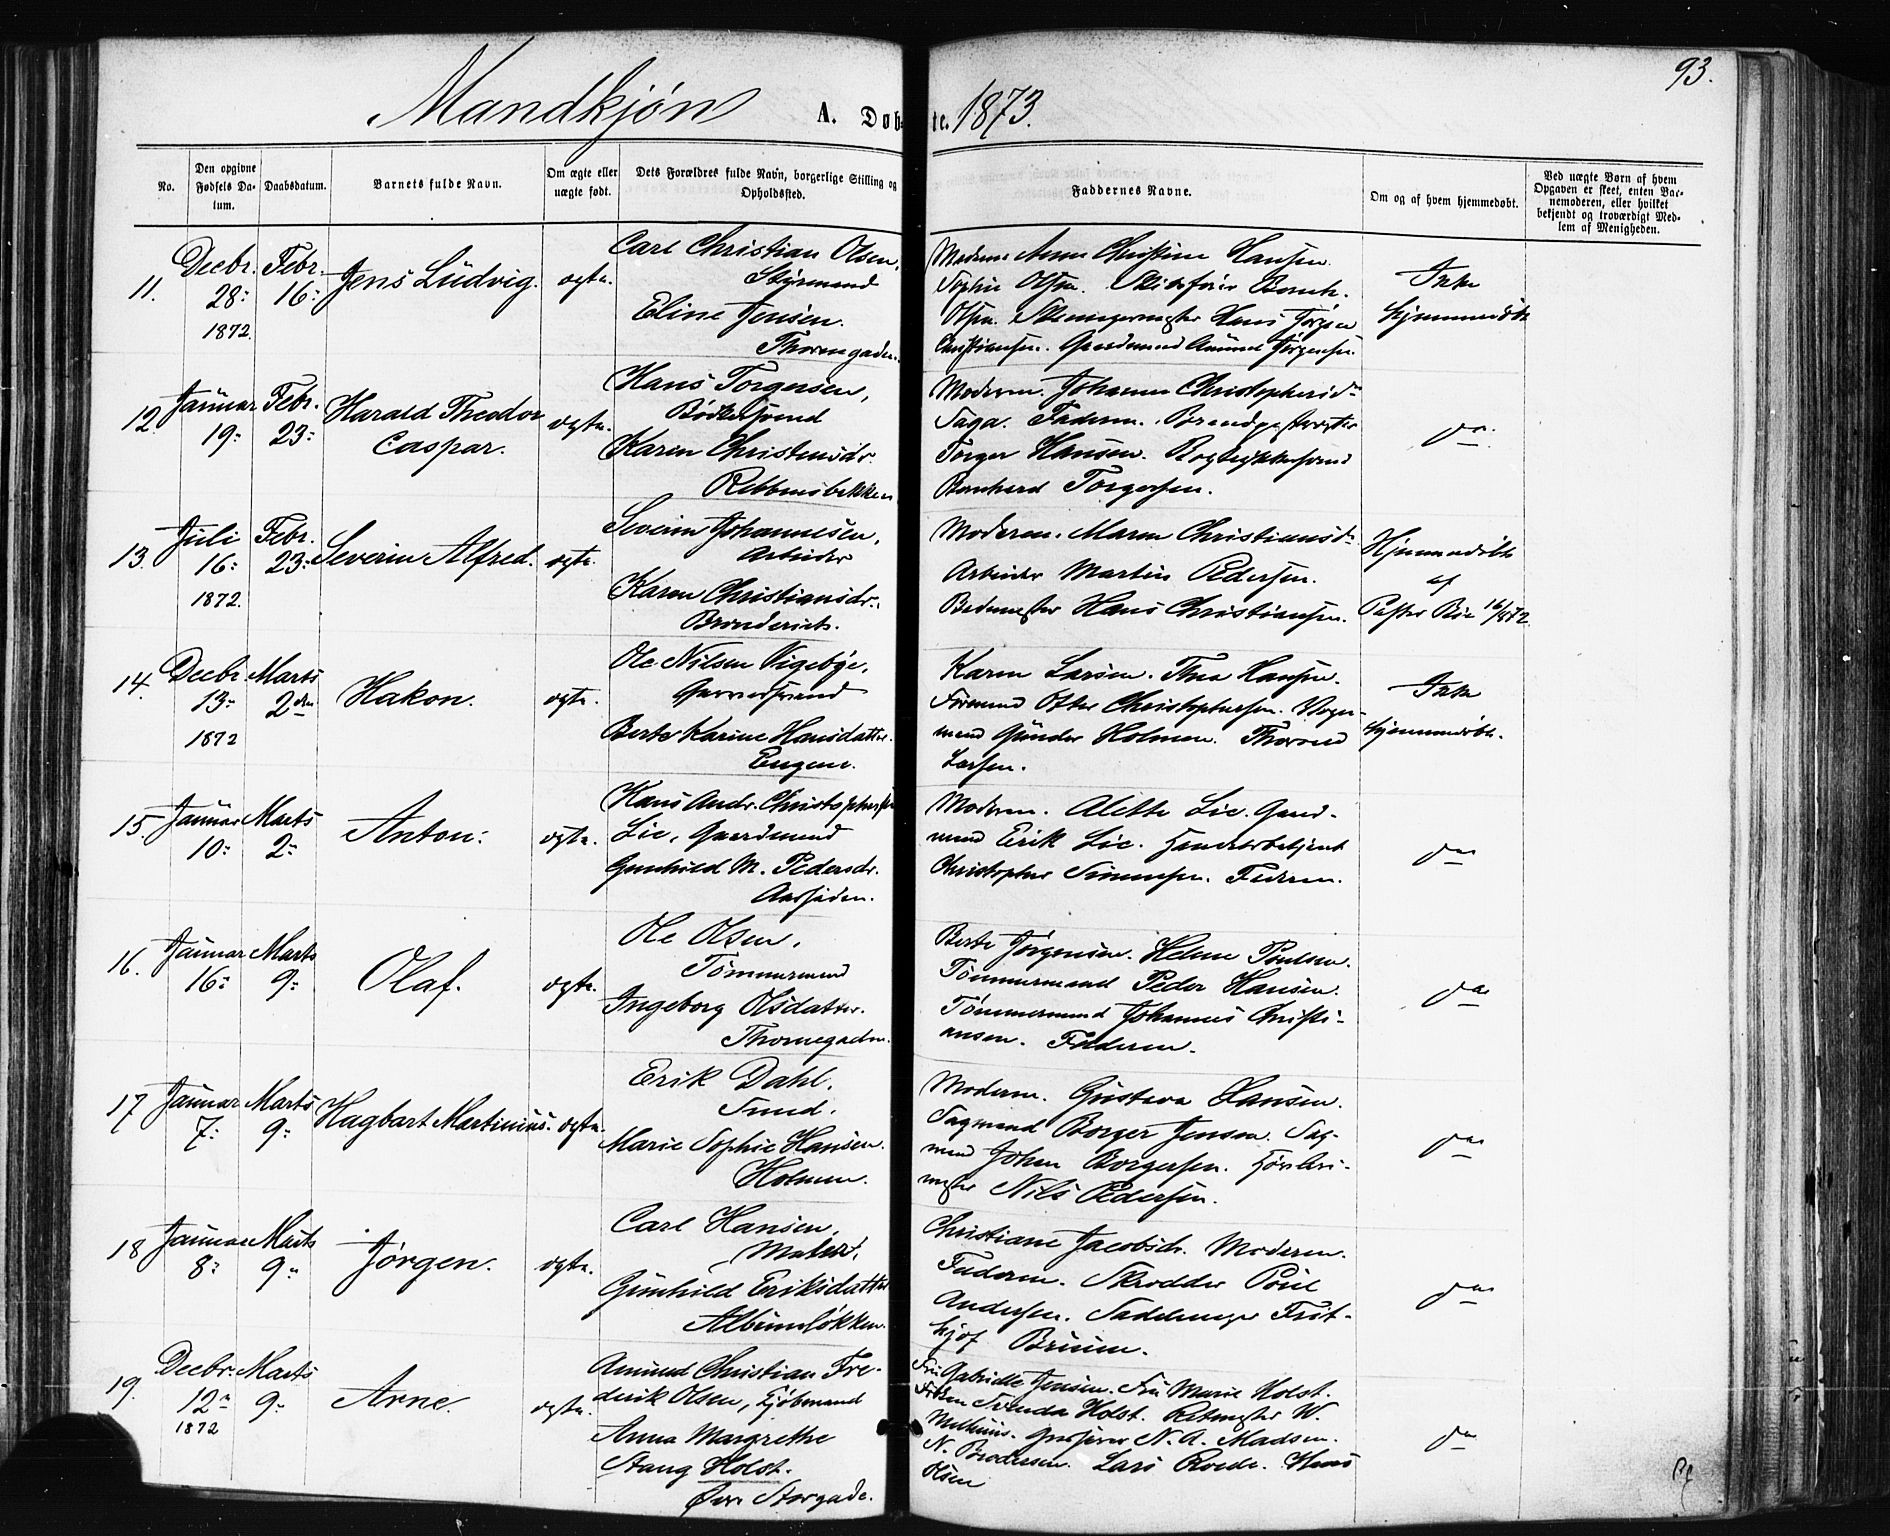 Mandkjøn A. Døbte. 1873. 93.
No.
Den opgivne Fødsels Datum.
Daabsdatum.
Barnets fulde Navn.
Om ægte eller uægte født.
Dets Forældres fulde Navn, borgerlige Stilling og Opholdssted.
Faddernes Navne.
Om og af hvem hjemmedøbt.
Ved uægte Børn af hvem Opgaven er skeet, enten Barnemoderen, eller hvilket bekjendt og troværdigt Medlem af Menigheden.
11.
Decbr. 28: 1872.
Febr. 16:
Jens Ludvig.
ægte.
Carl Christian Olsen,
Styrmand
Eline Jensen.
Thornegaden.
Moderen Anne Christine Hansen.
Sophie Olsen. Skibsfører Bernh.
Olsen. Hans Jørgen
Christiansen. Gaardmand Amund Jørgensen.
Ikke
hjemmedøbt
12.
Januar 19:
Febr. 23:
Harald Theodor
Caspar.
ægte.
Hans Torgersen,
Bødkersvend
Karen Christensdr.
Rebbensbakken
Moderen. Johanne Christophersd.
Saga. Faderen.
Torger Hansen.
Bernhard Torgersen.
do
13.
Juli 16: 1872.
Febr. 23:
Severin Alfred.
ægte.
Severin Johannesen,
Arbeider
Karen Christiansdr.
Moderen. Maren Christiansd.
Arbeider Martin Pedersen.
Hans Christiansen.
Hjemmedøbt
af
Pastor 16/8 72.
14.
Decbr. 13: 1872
Marts 2den
Hakon.
ægte.
Ole Nilsen Vigebye,
Garversvend
Berte Karine Hansdatter.
Engene.
Karen Larsen. Thea Hansen.
Formand Otter Christophersen. Vogn-
mand Gunder Holmen. Thorvald
Larsen.
Ikke
hjemmedøbt.
15.
Januar 10:
Marts 2:
Anton.
ægte.
Hans Andr. Christophersen
Lie, Gaardmand
Gunhild M. Pedersdr.
Aassiden.
Moderen. Alette Lie. Gaard-
mand Erik Lie. Handelsbetjent
Christopher Simensen. Faderen.
do
16.
Januar 16:
Marts 9:
Olaf.
ægte.
Ole Olsen,
Tømmermand
Ingeborg Olsdatter.
Thornegaden.
Berte Jørgensen. Helene Poulsen.
Tømmermand Peder Hansen.
Tømmermand Johannes Christi-
ansen. Faderen.
do
17
Januar 7:
Marts 9:
Hagbart Martinius.
ægte.
Erik Dahl.
Smed.
Marie Sophie Hansen.
Holmen.
Moderen. Gustava Hansen.
Sagmand Borger Jensen. Sag-
mand Johan Borgersen.
Nils Pedersen.
do
18
Januar 8:
Marts 9:
Jørgen.
ægte.
Carl Hansen,
Maler.
Gunhild Eriksdatter
Albumsløkken.
Christiane Jacobsdr. Moderen.
Faderen. Skrædder Poul
Andersen. Sadelmager Frit-
hjof Bruun.
do
19.
Decbr. 12: 1872
Marts 9:
Arne.
ægte.
Amund Christian Fre-
derik Olsen, Kjøbmand
Anna Margrethe
Stang Holst.
Øvre Storgade.
Fru Gabrielle Jensen. Fru Marie Holst.
Frøken Svenda Holst. Ritmester W.
Melhuus. Grosserer N. A. Madsen.
N. Brodersen. Lars Roede. Hans
Olsen
do